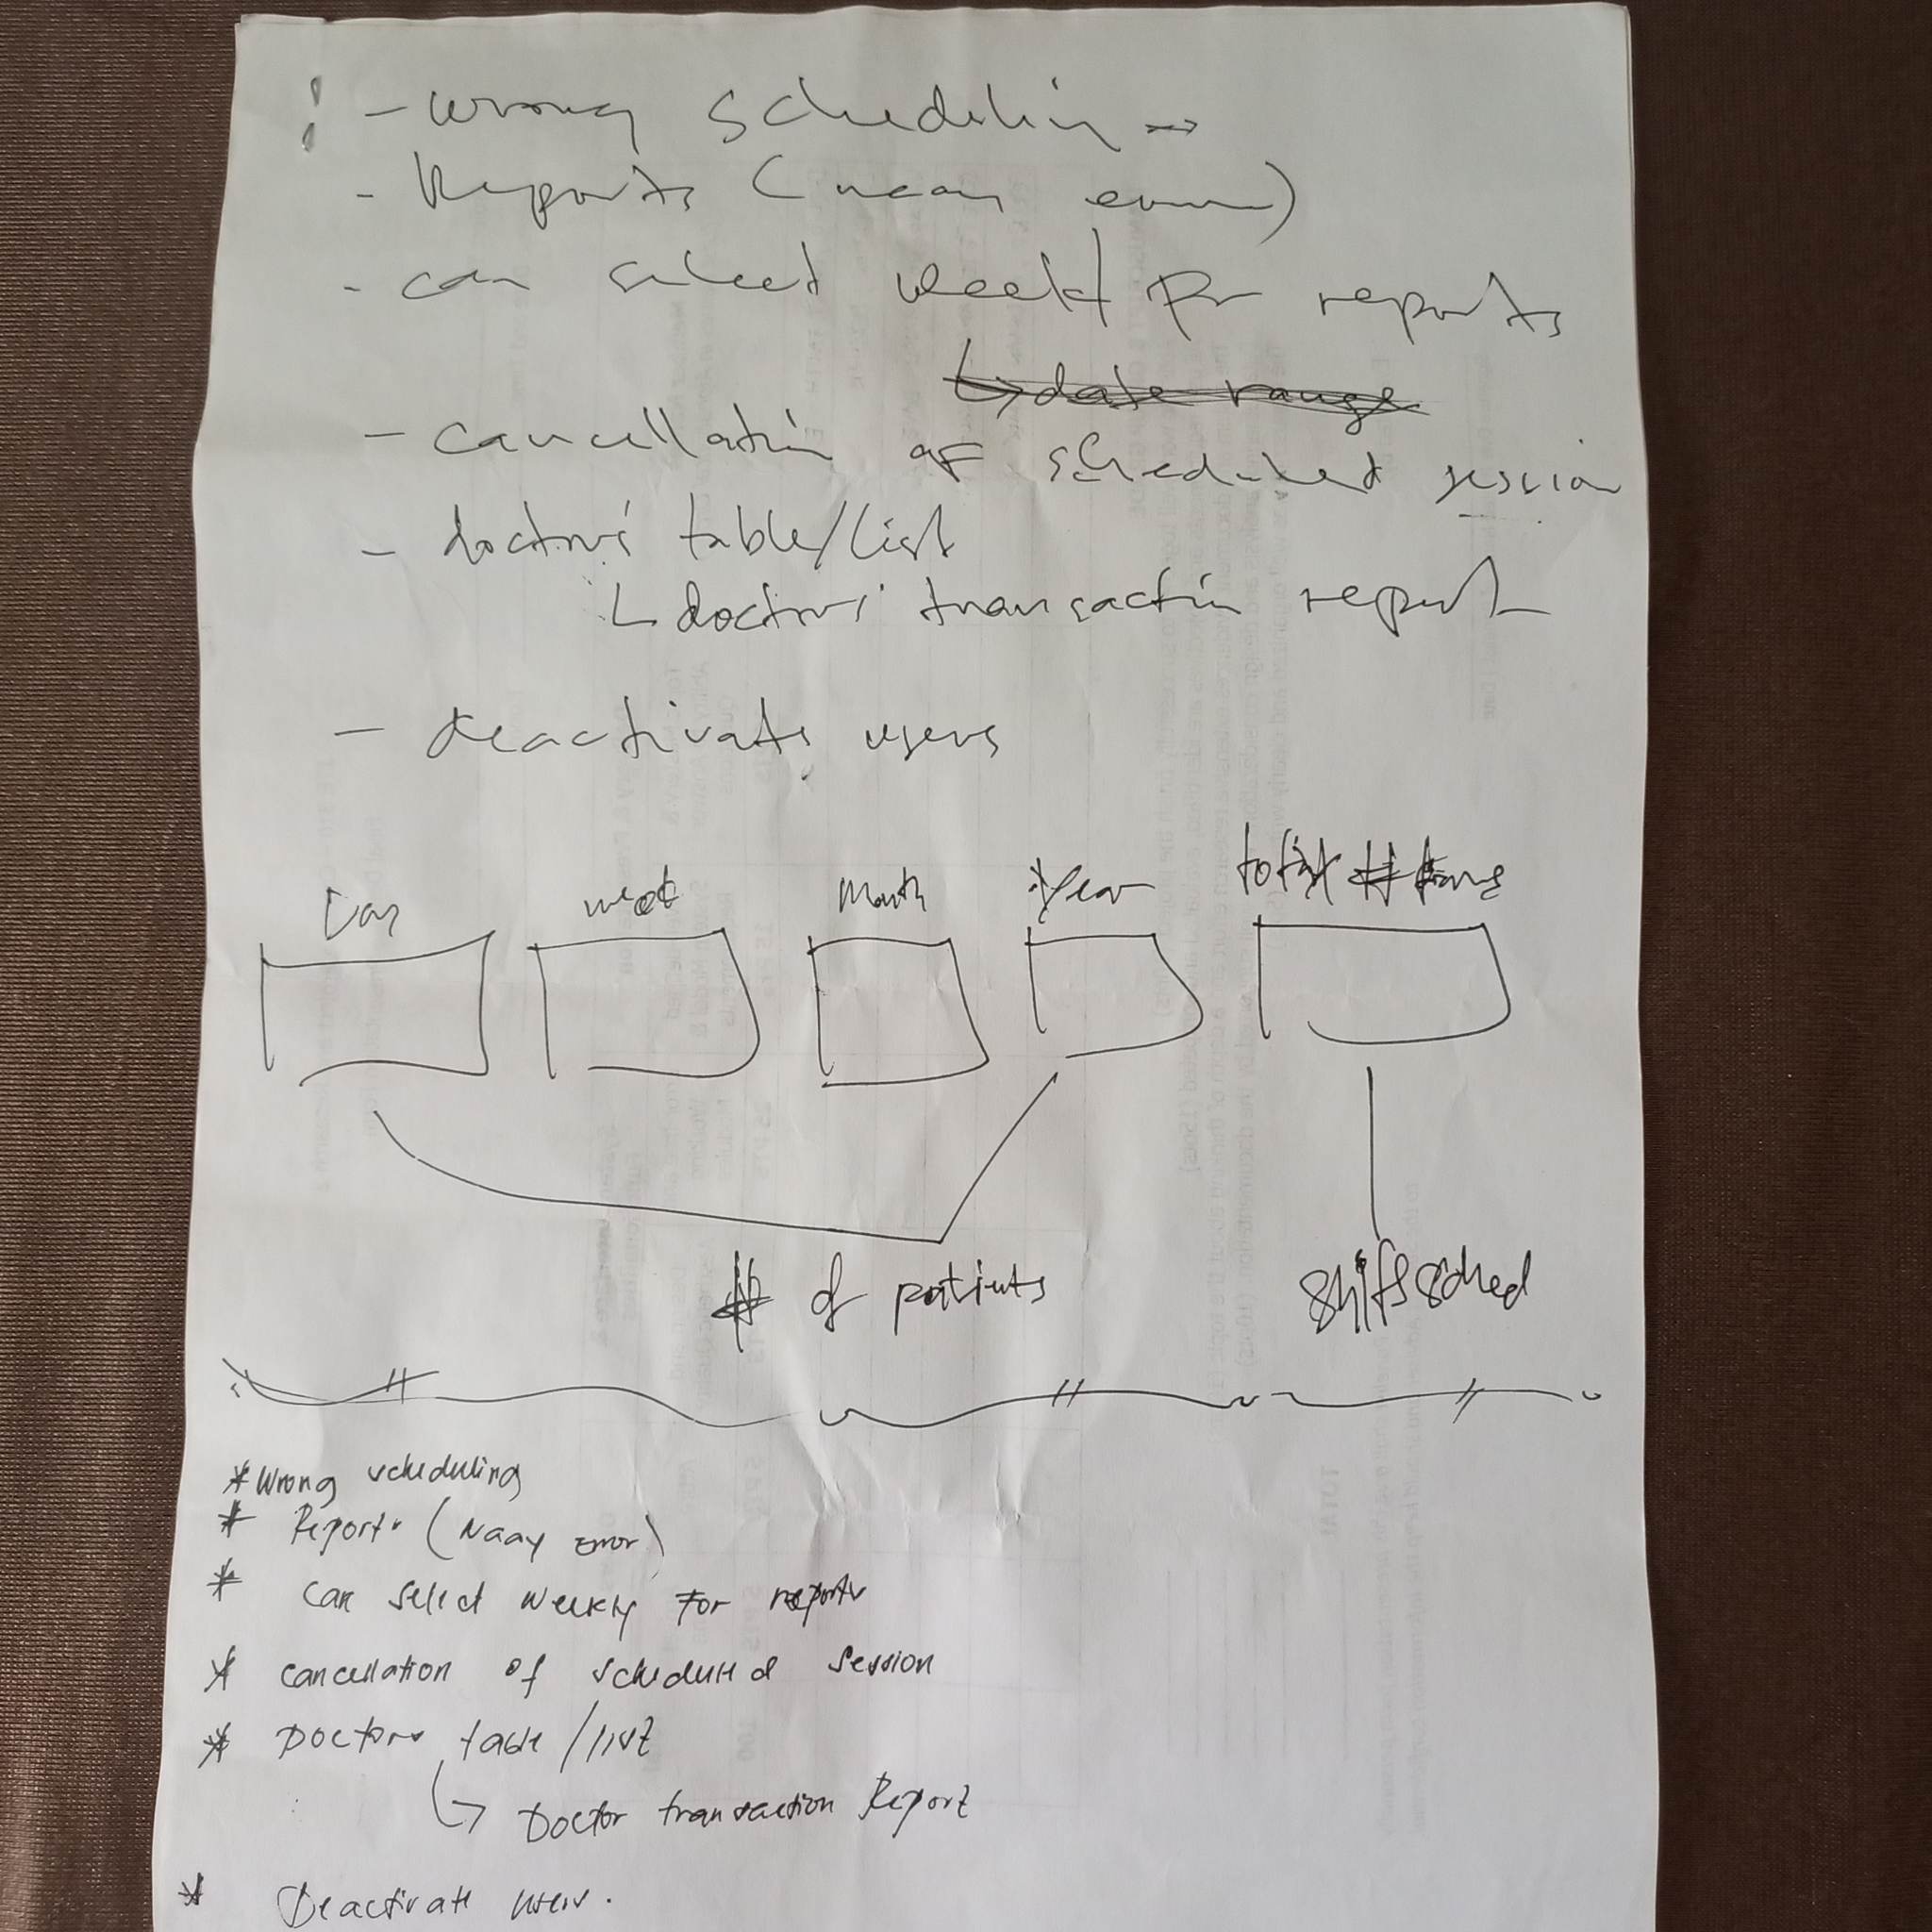 - wrong scheduling →
- Reports (naay error)
- can select week for reports
↳ date range
- cancellation of scheduled session
- doctors' table/list
↳ doctors' transaction report
- deactivate users
Day week Month Year total #
# of patients
shift sched
* Wrong scheduling
* Reports (Naay Error)
* Can select weekly for reports
* Cancellation of scheduled session
* Doctors table/list
↳ Doctor transaction Report
* Deactivate users.